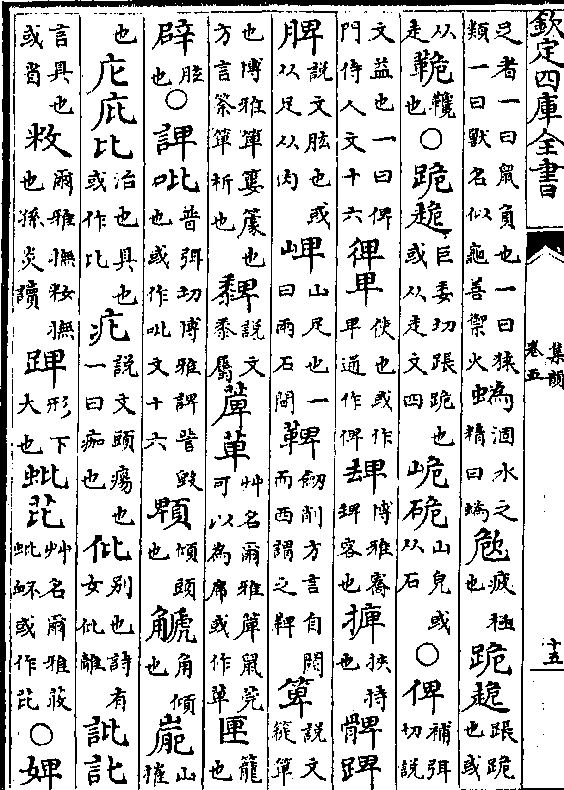 欽定四庫全書
集韻
卷五
十五
足者一曰鼠負也一曰狹為涸水之
類一曰獸名似龜善禦火蟲精曰螭
䠊疲極也
跪䞨䟫跪也或
从走
䩻韉也
○
跪䞨巨委切䟫跪也或从走文四
峗硊山皃或从石
○
俾補弭切說
文益也一曰俾門侍人文十六
𢔌卑使也或作卑通作俾
䫌博雅䯱䫌容也
捭挾持也
髀䠋
脾說文股也或从足从肉
崥山足也一曰雨石間
鞞劒削方言自關而西謂之鞞
箄說文簁箄
也博雅箄簍籅也方言箖箄析也
䵗說文黍屬
蓖萆艸名爾雅蓖鼠莞可以為席或作萆
匣籠也
臂䏶也
○
諀吡普弭切博雅諀訾毀也或作吡文十六
頻傾頭也
觬角傾也
嵬山摧
也
庀庇比治也具也或作比
疕說文頭瘍也一曰痂也
仳別也詩有女仳離
訿訨
言具也或省
敉爾雅憮敉撫也孫炎讀
䠋形下大也
蚍芘艸名爾雅荍蚍衃或作芘
○
婢